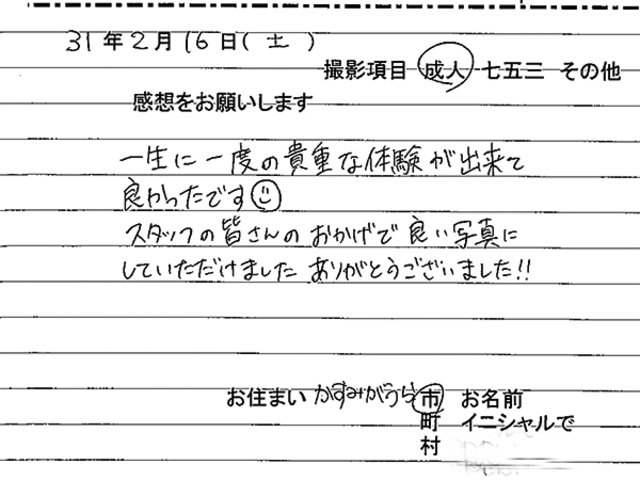 31年2月16日(土)
撮影項目 成人 七五三 その他
感想をお願いします
一生に一度の貴重な体験が出来て
良かったです☺
スタッフの皆さんのおかげで良い写真に
していただけました ありがとうございました!!
お住まい かすみがうら 市 お名前
町 イニシャルで
村